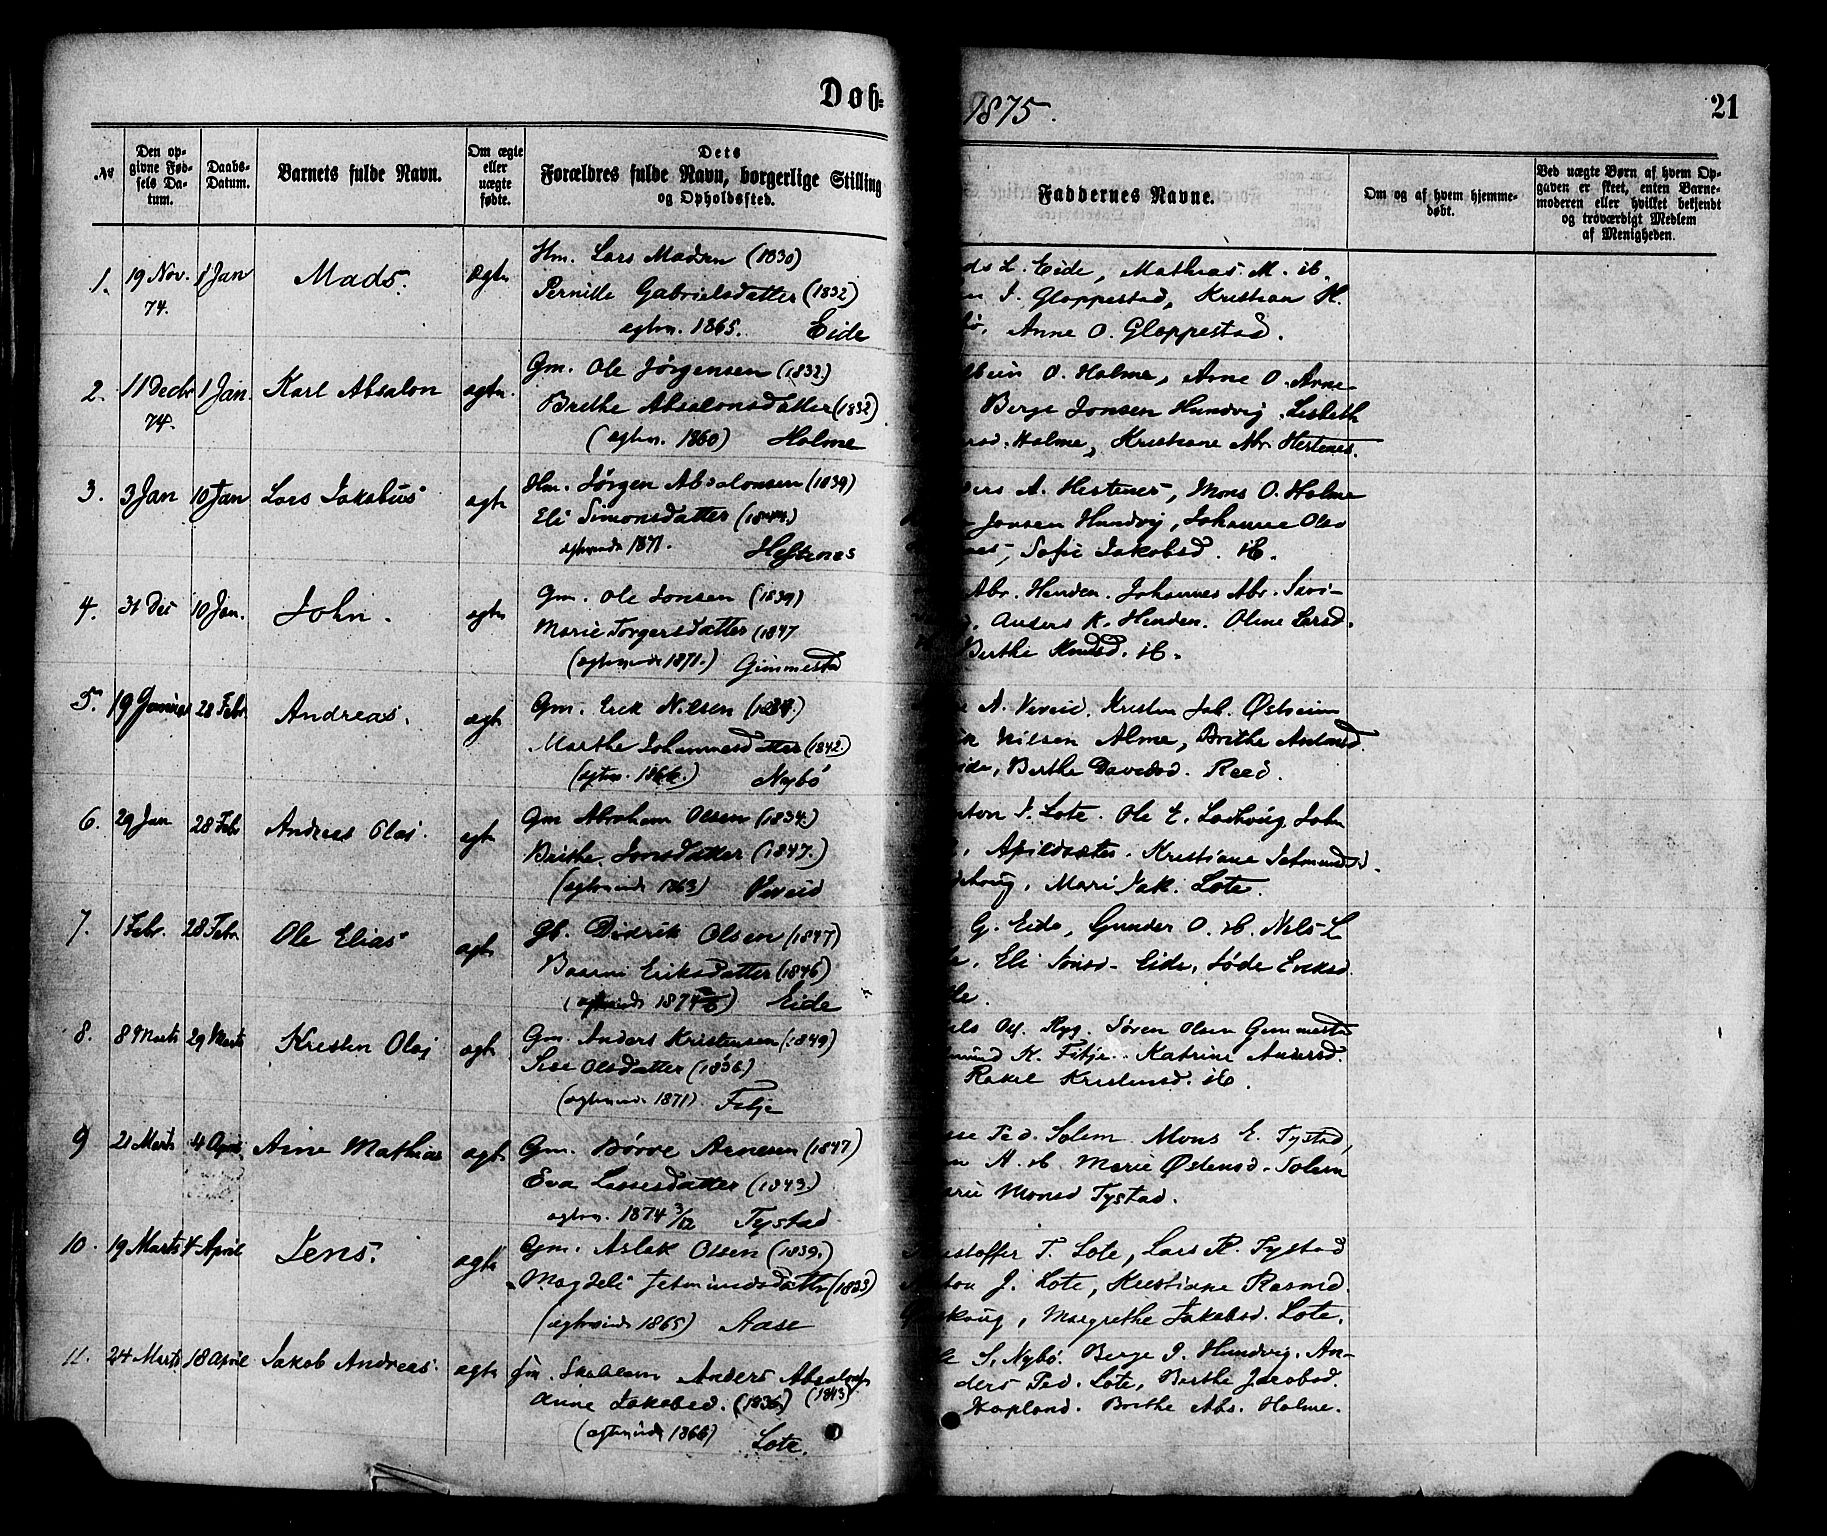 Døb= 1875. 21
No
Den op-
givne Fød-
sels Da-
tum.
Daabs-
Datum.
Barnets fulde Navn.
Om ægte
eller
uægte
fødte.
Dets
Forældres fulde Navn, borgerlige Stilling
og Opholdssted.
Faddernes Navne.
Om og af hvem hjemme-
døbt.
Ved uægte Børn af hvem Op-
gaven er skeet, enten Barne-
moderen eller hvilket bekjendt
og troværdigt Medlem
af Menigheden.
1. 19 Nov. 74. 1 Jan Mads. ægte
Hm. Lars Madsen (1830)
Pernille Gabrielsdatter (1832)
egtev. 1865. Eide
L. Eide, Mathias M. ib.
I. Gloppestad, Kristian K.
Anne O. Gloppestad.
2. 11 Decbr 74. 1 Jan. Karl Absalon egte.
Gm. Ole Jørgensen (1832.)
Brethe Absalonsdatter (1832)
(egtev. 1860) Holme
O. Holme, Arne O. Arne-
Berge Jonsen Hundvig. Lisbeth
Holme, Kristiane Abr. Hestenes.
3. 3 Jan 10 Jan Lars Jakobus egte
Hm. Jørgen Absalonsen (1839)
Eli Simonsdatter (1844.)
egteviede 1871. Hestenes
A. Hestenes, Mons O. Holme
Jonsen Hundvig, Johanne Olsd
Sofie Jakobsd. ib.
4. 31 Des 10 Jan. John. egte
Gm. Ole Jonsen (1839)
Marie Torgersdatter (1847
(egteviede 1871.) Gimmestad
Abr. Henden. Johannes Abr. Sævi-
Anders K. Henden. Oline Larsd.
Berthe Knudsd. ib.
5. 19 Januar 28 Febr. Andreas. egte
Gm. Erik Nilsen
Marthe Johannesdatter (1842.)
(egtev. 1866.) Nybø
A. Vereid. Kristen Jak. Østheim
Nilsen Alme, Brithe Antonsd.
Berthe Davidsd. Reed.
6. 29 Jan 28 Febr Andreas Olai. egte
Gm Abraham Olsen (1834.)
Brithe Jonsdatter (1847.)
(egteviede 1863) Vereid
J. Lote. Ole E. Lothoug. John
Apildsæter. Kristiane Jetmundsd.
Mari Jak. Lote.
7. 1 Febr. 28 Febr. Ole Elias egte
Gb. Didrik Olsen (1847)
Eriksdatter (1846)
Eide
G. Eide, Gunder O. ib. Nils L
Eli Jonsd. Eide,
8. 8 Marts 29 Marts Kristen Olai egte
Gm. Anders Kristensen (1849)
Sise Olsdatter (1836)
(egteviede 1871) Fitje
Ryg. Søren Olsen Gimmestad
K. Fitje. Katrine Andersd.
Rakel Kristensd. ib.
9 21 Marts 4 April. Arne Mathias egte.
Gm. Børre Arnesen (1847)
Eva Lassesdatter (1843.)
egtev. 1874 3/12 Tystad
Ped. Solem. Mons E. Tystad,
A. ib. Marie Østensd. Solem
Monsd Tystad.
10. 19 Marts 4 April Jens. egte
Gm. Aslak Olsen (1839.)
Magdeli Jetmundsdatter (1833)
(egteviede 1865) Aase
T. Lote, Lars R. Tystad
J. Lote, Kristiane Rasmd.
Margrethe Jakobsd. Lote.
11. 24 Marts 18 April Jakob Andreas. egte
Gm. Skolelærer Anders Absalonsen
Anne Jakobsd. (1836) (1843)
(egteviede 1866) Lote.
S. Nybø. Berge J. Hundvig. An-
ders Ped. Lote, Berthe Jacobsd.
Hopland. Brithe Abs. Holme.